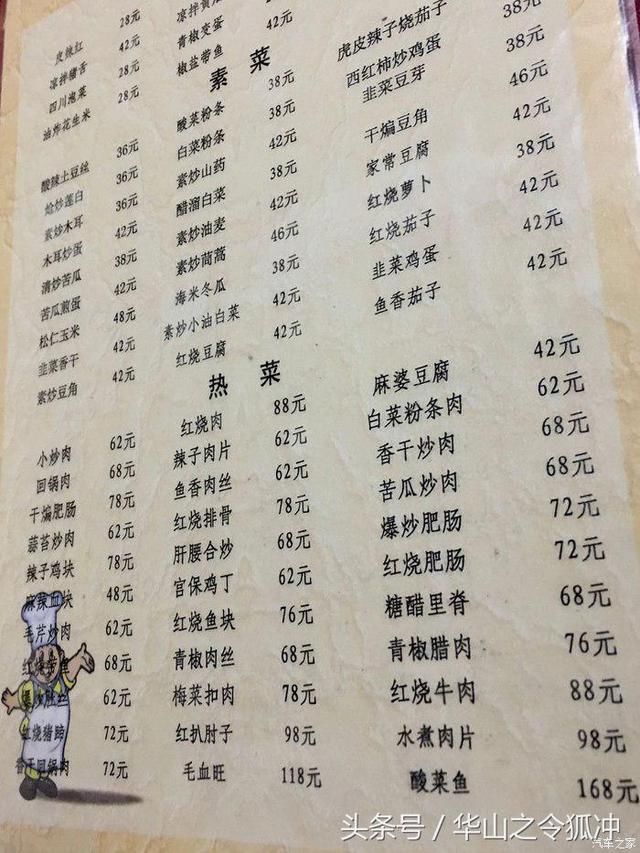 28元
凉拌猪舌 42元
四川泡菜 28元
油炸花生米 28元
青椒变蛋
椒盐带鱼
素菜
酸辣土豆丝 36元
炝炒莲白 36元
素炒木耳 36元
木耳炒蛋 42元
清炒苦瓜 38元
苦瓜煎蛋 42元
松仁玉米 48元
韭菜香干 42元
素炒豆角 42元
酸菜粉条 38元
白菜粉条 38元
素炒山药 42元
醋溜白菜 38元
素炒油麦 42元
素炒茼蒿 46元
海米冬瓜 38元
素炒小油白菜 42元
红烧豆腐 42元
虎皮辣子烧茄子 38元
西红柿炒鸡蛋 38元
韭菜豆芽 46元
干煸豆角 42元
家常豆腐 38元
红烧萝卜 42元
红烧茄子 42元
韭菜鸡蛋 42元
鱼香茄子
热菜
小炒肉 62元
回锅肉 68元
干煸肥肠 78元
蒜苔炒肉 62元
辣子鸡块 78元
麻辣血块 48元
毛芹炒肉 62元
红烧带鱼 68元
爆炒肚丝 62元
红烧猪蹄 72元
香干回锅肉 72元
红烧肉 88元
辣子肉片 62元
鱼香肉丝 62元
红烧排骨 78元
肝腰合炒 68元
官保鸡丁 62元
红烧鱼块 76元
青椒肉丝 68元
梅菜扣肉 78元
红扒肘子 98元
毛血旺 118元
麻婆豆腐 42元
白菜粉条肉 62元
香干炒肉 68元
苦瓜炒肉 68元
爆炒肥肠 72元
红烧肥肠 72元
糖醋里脊 68元
青椒腊肉 76元
红烧牛肉 88元
水煮肉片 98元
酸菜鱼 168元
头条号/华山之令狐冲
汽车之家